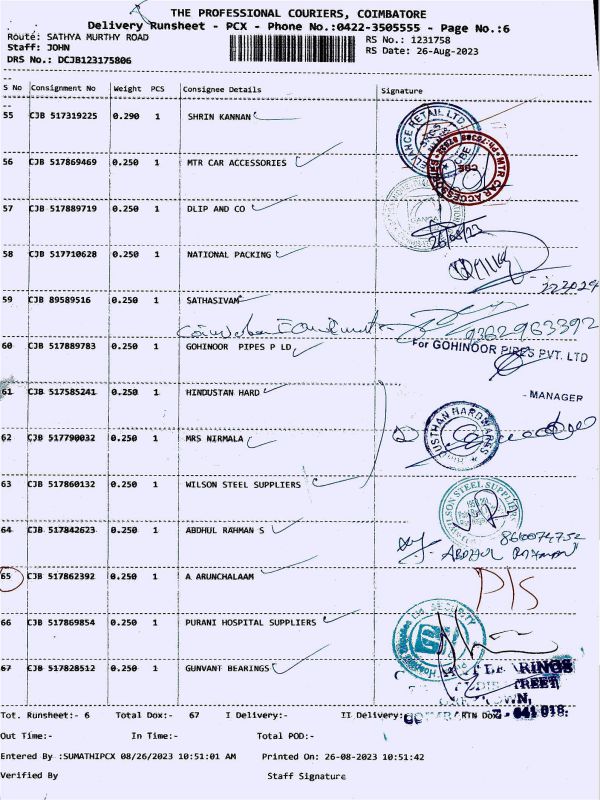 THE PROFESSIONAL COURIERS, COIMBATORE
Delivery Runsheet - PCX - Phone No.:0422-3505555 - Page No.:6
Route: SATHYA MURTHY ROAD RS No.: 1231758
Staff: JOHN RS Date: 26-Aug-2023
DRS No.: DCJB123175806
S No Consignment No Weight PCS Consignee Details Signature
55 CJB 517319225 0.290 1 SHRIN KANNAN
RETAIL LTD
56 CJB 517869469 0.250 1 MTR CAR ACCESSORIES
MTR CAR ACCESSORIES
CBE
57 CJB 517889719 0.250 1 DLIP AND CO
GANGA
26/08/23
58 CJB 517710628 0.250 1 NATIONAL PACKING
59 CJB 89589516 0.250 1 SATHASIVAM
9362963392
60 CJB 517889783 0.250 1 GOHINOOR PIPES P LD
For GOHINOOR PIPES PVT. LTD
61 CJB 517585241 0.250 1 HINDUSTAN HARD
- MANAGER
62 CJB 517790032 0.250 1 MRS NIRMALA
USTHAN HARDWARES
63 CJB 517860132 0.250 1 WILSON STEEL SUPPLIERS
WILSON STEEL SUPPLIERS
64 CJB 517842623 0.250 1 ABDHUL RAHMAN S
8610074752
65 CJB 517862392 0.250 1 A ARUNCHALAAM
P/S
66 CJB 517869854 0.250 1 PURANI HOSPITAL SUPPLIERS
SECURITY
67 CJB 517828512 0.250 1 GUNVANT BEARINGS
BEARINGS
STREET,
TOWN,
641 018.
Tot. Runsheet:- 6 Total Dox:- 67 I Delivery:- II Delivery:-
Out Time:- In Time:- Total POD:-
Entered By :SUMATHIPCX 08/26/2023 10:51:01 AM Printed On: 26-08-2023 10:51:42
Verified By Staff Signature